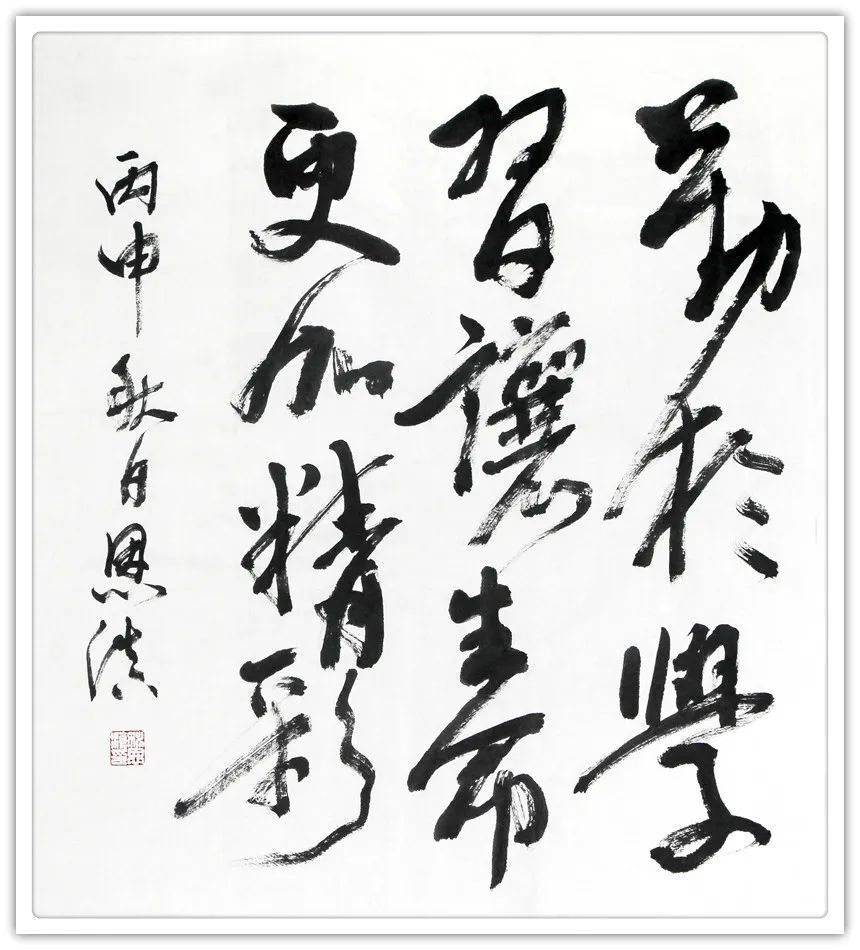 勤於學
習讓生命
更加精彩
丙申秋月恩滨